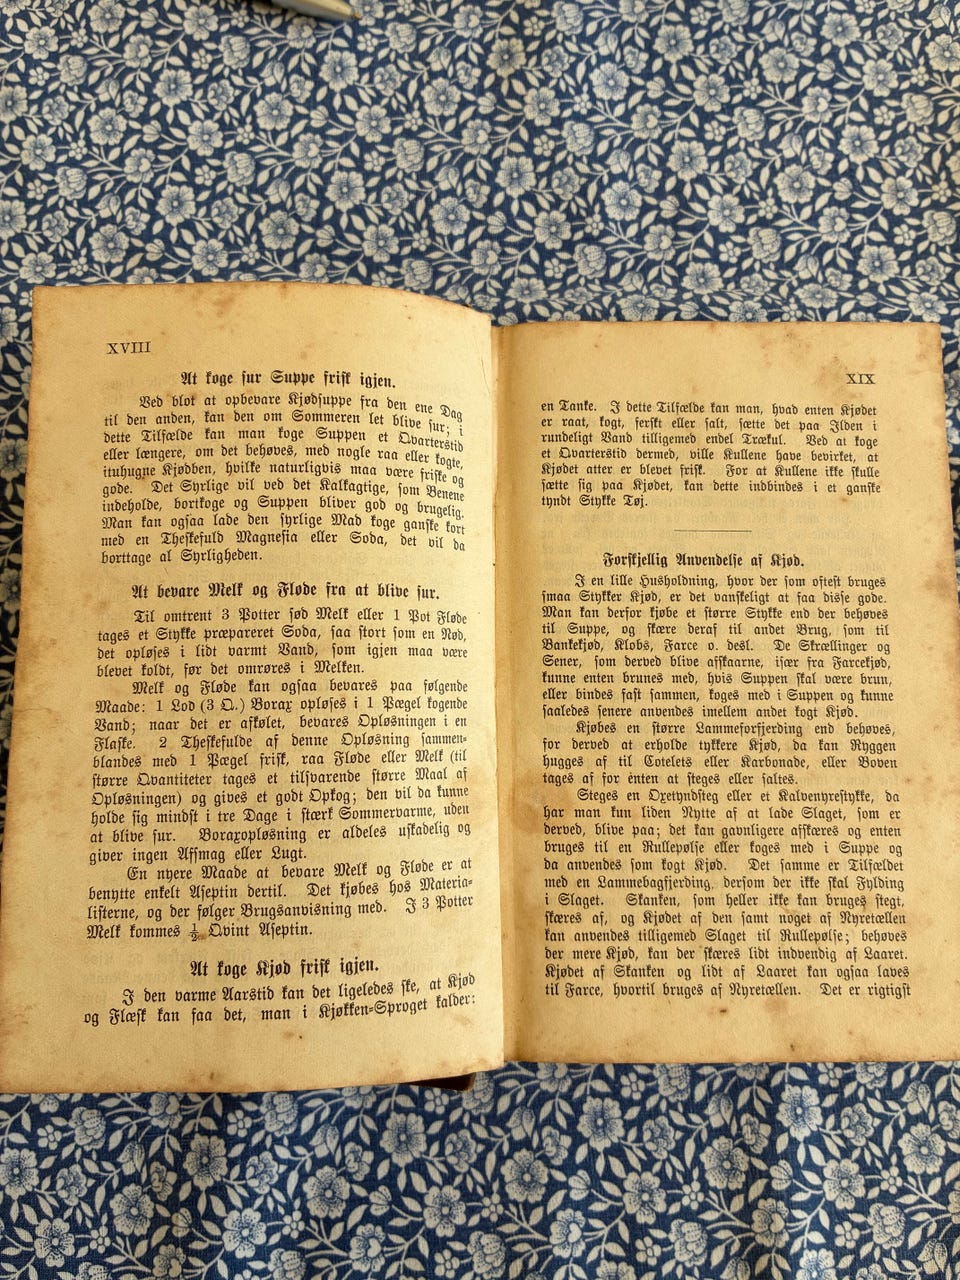 XVIII
At koge sur Suppe frisk igjen.
Ved blot at opbevare Kjødsuppe fra den ene Dag
til den anden, kan den om Sommeren let blive sur; i
dette Tilfælde kan man koge Suppen et Qvarterstid
eller længere, om det behøves, med nogle raa eller kogte,
ituhugne Kjødben, hvilke naturligvis maa være friske og
gode. Det Syrlige vil ved det Kalkagtige, som Benene
indeholde, bortkoge og Suppen bliver god og brugelig.
Man kan ogsaa lade den syrlige Mad koge ganske kort
med en Theskefuld Magnesia eller Soda, det vil da
borttage al Syrligheden.
At bevare Melk og Fløde fra at blive sur.
Til omtrent 3 Potter sød Melk eller 1 Pot Fløde
tages et Stykke præpareret Soda, saa stort som en Nød,
det opløses i lidt varmt Vand, som igjen maa være
blevet koldt, før det omrøres i Melken.
Melk og Fløde kan ogsaa bevares paa følgende
Maade: 1 Lod (3 Q.) Borax opløses i 1 Pægel kogende
Vand; naar det er afkølet, bevares Opløsningen i en
Flaske. 2 Theskefulde af denne Opløsning sammen-
blandes med 1 Pægel frisk, raa Fløde eller Melk (til
større Qvantiteter tages et tilsvarende større Maal af
Opløsningen) og gives et godt Opkog; den vil da kunne
holde sig mindst i tre Dage i stærk Sommervarme, uden
at blive sur. Boraxopløsning er aldeles uskadelig og
giver ingen Afsmag eller Lugt.
En nyere Maade at bevare Melk og Fløde er at
benytte enkelt Aseptin dertil. Det kjøbes hos Materia-
listerne, og der følger Brugsanvisning med. I 3 Potter
Melk kommes ½ Qvint Aseptin.
At koge Kjød frisk igjen.
I den varme Aarstid kan det ligeledes ske, at Kjød
og Flæsk kan faa det, man i Kjøkken-Sproget kalder:
XIX
en Tanke. I dette Tilfælde kan man, hvad enten Kjødet
er raat, kogt, ferskt eller salt, sætte det paa Ilden i
rundeligt Vand tilligemed endel Trækul. Ved at koge
et Qvarterstid dermed, ville Kullene have bevirket, at
Kjødet atter er blevet frisk. For at Kullene ikke skulle
sætte sig paa Kjødet, kan dette indbindes i et ganske
tyndt Stykke Tøj.
Forskjellig Anvendelse af Kjød.
I en lille Husholdning, hvor der som oftest bruges
smaa Stykker Kjød, er det vanskeligt at faa disse gode.
Man kan derfor kjøbe et større Stykke end der behøves
til Suppe, og skære deraf til andet Brug, som til
Bankekjød, Klobs, Farce o. desl. De Skrællinger og
Sener, som derved blive afskaarne, især fra Farcekjød,
kunne enten brunes med, hvis Suppen skal være brun,
eller bindes fast sammen, koges med i Suppen og kunne
saaledes senere anvendes imellem andet kogt Kjød.
Kjøbes en større Lammeforfjerding end behøves,
for derved at erholde tykkere Kjød, da kan Ryggen
hugges af til Cotelets eller Karbonade, eller Boven
tages af for enten at steges eller saltes.
Steges en Oxetyndsteg eller et Kalvenyrestykke, da
har man kun liden Nytte af at lade Slaget, som er
derved, blive paa; det kan gavnligere afskæres og enten
bruges til en Rullepølse eller koges med i Suppe og
da anvendes som kogt Kjød. Det samme er Tilfældet
med en Lammebagfjerding, dersom der ikke skal Fylding
i Slaget. Skanken, som heller ikke kan bruges stegt,
skæres af, og Kjødet af den samt noget af Nyretællen
kan anvendes tilligemed Slaget til Rullepølse; behøves
der mere Kjød, kan der skæres lidt indvendig af Laaret.
Kjødet af Skanken og lidt af Laaret kan ogsaa laves
til Farce, hvortil bruges af Nyretællen. Det er rigtigst